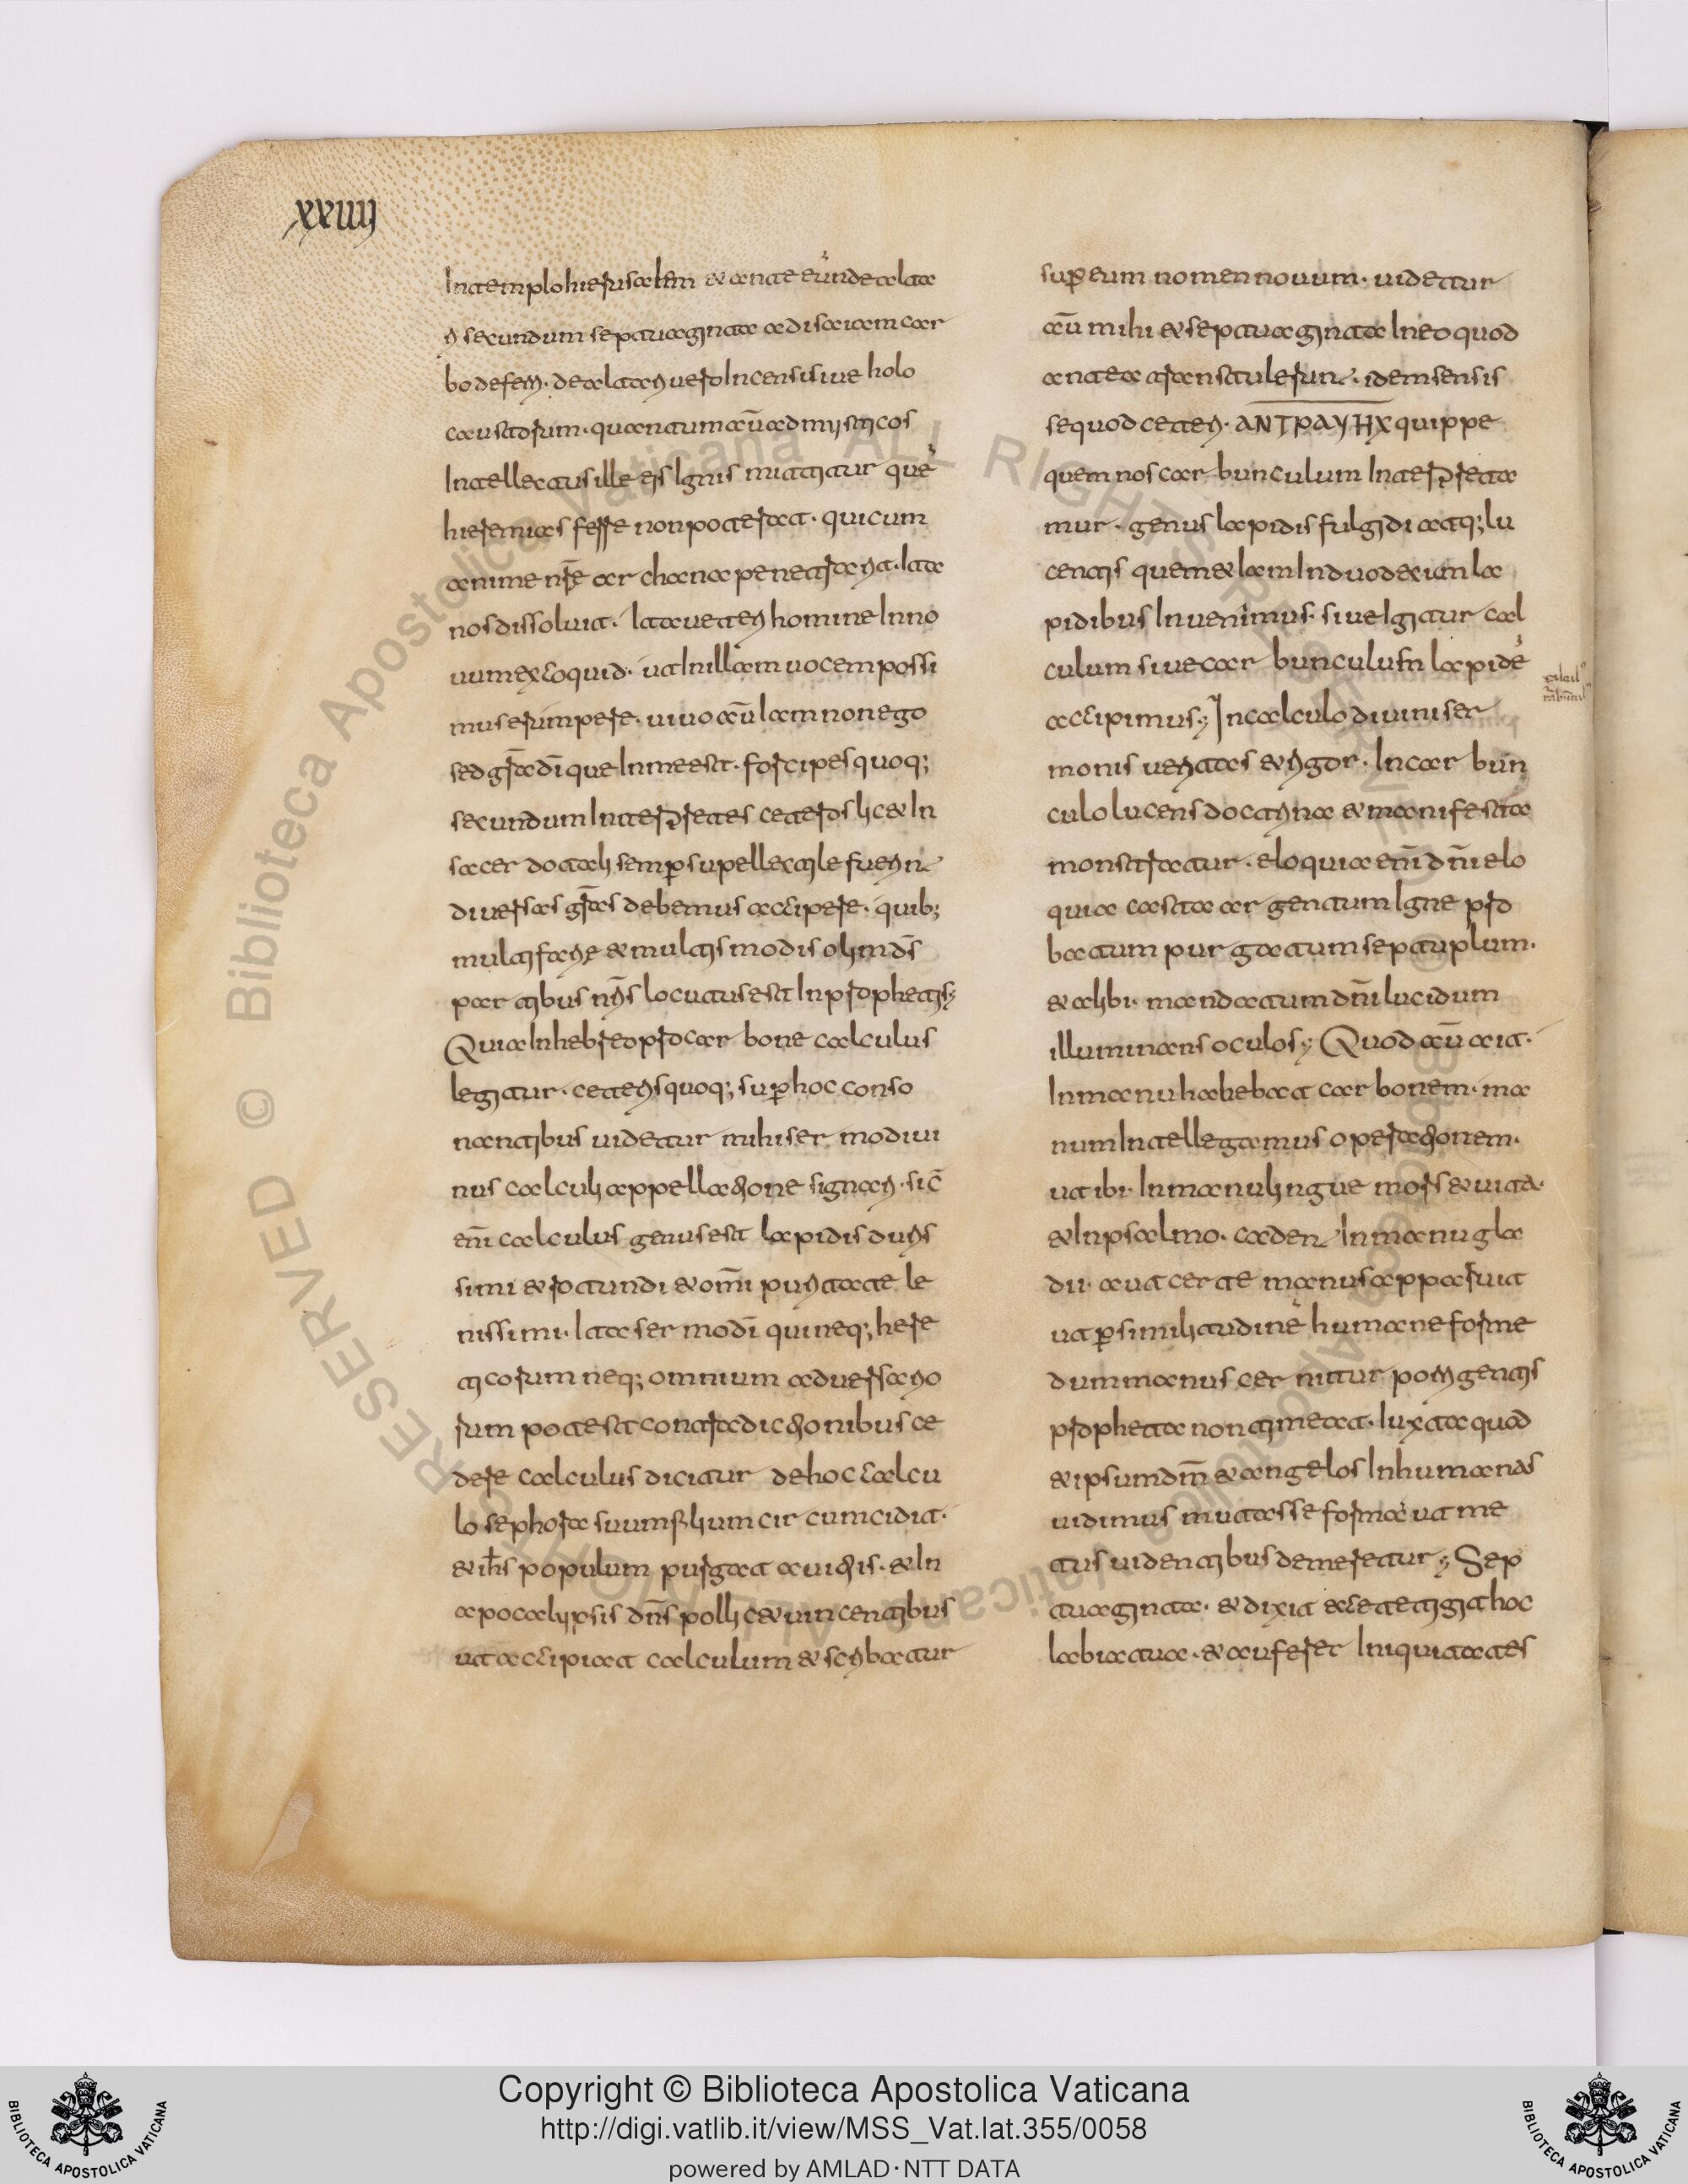 xxiiii
In templo hierusalem et ante eundē oblata
ri secundum septuaginta addisciam car
bo deferri. de altari uero Incensi siue holo
caustorum. quantum aū ad mysticos
Intellectus ille eis Ignis mittitur quē
hieremias ferre non poterat. qui cum
anime nr̄e archana penetrarit. Ita
nos dissoluit. Ita uetteri homine In no
uum excoquid. ut In illam uocem possi
mus erumpere. uiuo aū Iam non ego
sed gr̄a dī que In me est. forcipes quoq;
secundum Interp̄retes ceteros licet In
sacerdotali semp̄ supellectile fuerint
diuersas gr̄as debemus accipere. quib;
multifarie et multis modis olim ds̄
partibus nr̄is locutus est In prophetis;
Quia In hebreo pro carbone calculus
legitur. ceteris quoq; sup̄ hoc conso
nantibus uidetur mihi sermo diui
nus calculi appellatione signari. sic̄
enī calculus genus est lapidis duris
simi et rotundi et omī puritate le
nissimi. Ita sermo dī qui neq; here
ticorum neq; omnium aduersario
rum potest contradictionibus ce
dere calculus dicitur de hoc calcu
lo sephora suum filium circumcidit.
et ihs̄ populum purgat a uitiis. et In
apocalypsis dns̄ pollicet uincentibus
ut accipiat calculum et scribatur
sup̄ eum nomen nouum. uidetur
aū mihi et septuaginta In eo quod
antea transtulerunt. idem sensis
se quod ceteri. ANTPAYHX quippe
quem nos carbunculum Interp̄reta
mur. genus lapidis fulgidi atq; lu
centis quem etiam In duodecim la
pidibus Inuenimus. siue Igitur cal
culum siue carbunculum lapidē
accipimus; In calculo diuini ser
monis ueritas et rigor. In carbun
culo lucens doctrina et manifesta
monstratur. eloquia enī dnī elo
quia casta argentum Igne pro
batum purgatum septuplum.
et alibi. mandatum dnī lucidum
illuminans oculos; Quod aū ait.
In manu habebat carbonem. ma
num Intellegamus operationem.
ut ibi. In manu lingue mors et uita.
et In psalmo. cadent In manu gla
dii. aut certe manus apparuit
ut p̄ similitudinē humane forme
dum manus cernitur porrigentis
propheta non timeat. Iuxta quod
et ipsum dnm̄ et angelos In humanas
uidimus mutasse formas ut me
tus uidentibus demeretur; Sep
tuaginta. et dixit ecce tetigit hoc
labia tua. et auferet Iniquitates